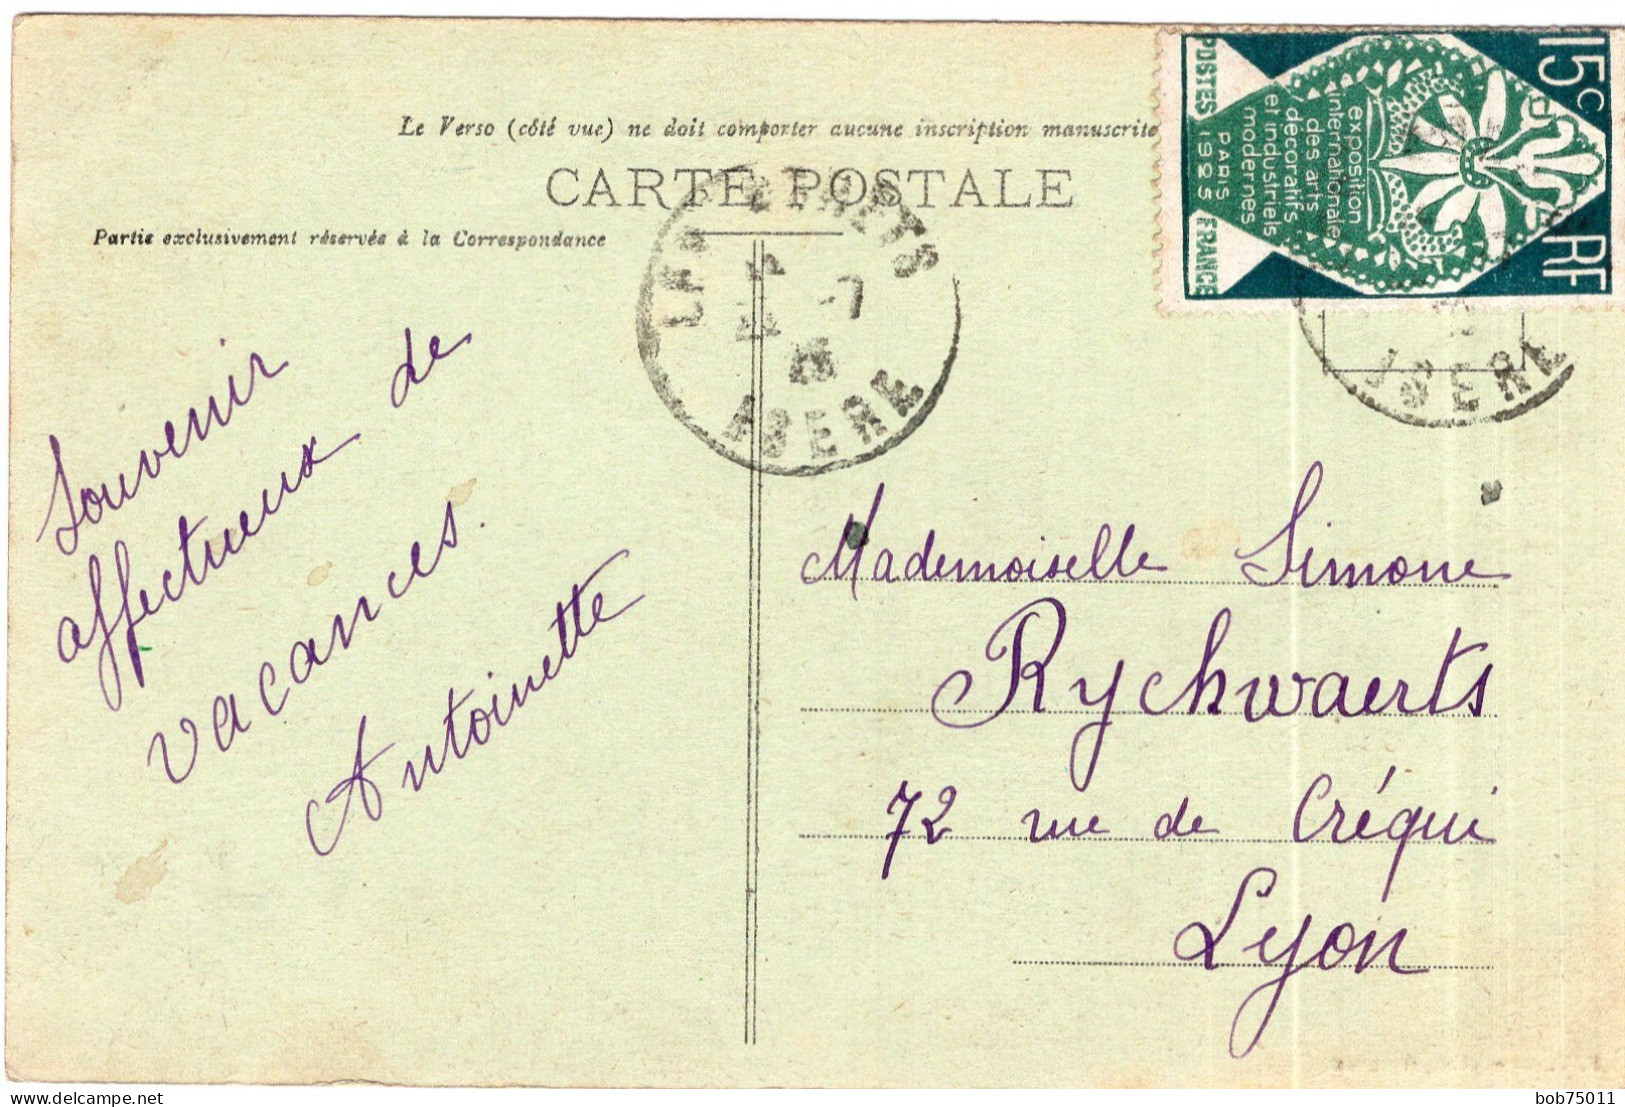 Le Verso (côté vue) ne doit comporter aucune inscription manuscrite
CARTE POSTALE
Partie exclusivement réservée à la Correspondance
POSTES FRANCE
PARIS 1925
exposition
internationale
des arts
décoratifs
et industriels
modernes
15c RF
-7
ISERE
ISERE
Souvenir
affectueux de
vacances.
Antoinette
Mademoiselle Simone
Rychwaerts
72 rue de Créqui
Lyon
bob75011